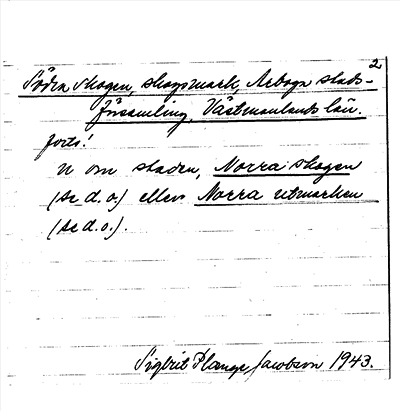 2
Södra skogen, skogsmark, Arboga stads-
församling, Västmanlands län.
forts.!
n om staden, Norra skogen
(se d.o.) eller Norra utmarken
(se d.o.).
Sigbrit Plange Jacobson 1943.